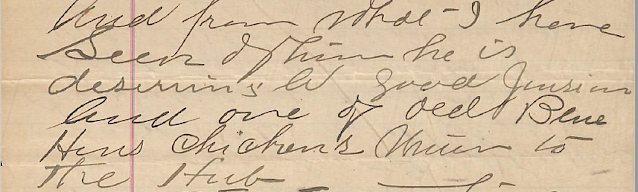 And from what I have
Seen of him he is
deserving A good Pension
And one of old Blue
Hens Chickens Union to
The Hub